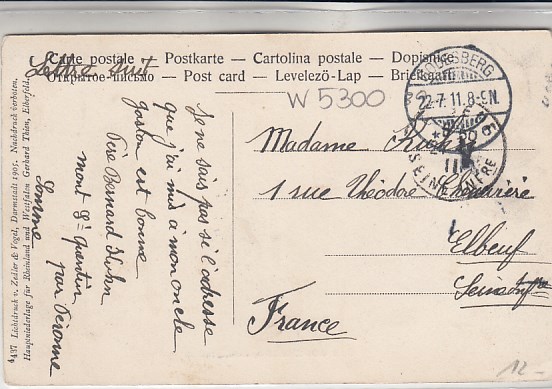 Carte postale — Postkarte — Cartolina postale — Dopisnice
Открытое письмо — Post card — Levelezö-Lap — Briefkaart
Lettre suit
W 5300
22.7.11.8-9N.
SEINE
Je ne sais pas si l'adresse
que j'ai mis à mon oncle
Gaston est bonne
Père Bernard
mont St Quentin
par Péronne
Somme
Madame
1 rue Théodore
Elbeuf
Seine Infre
France
4437 Lichtdruck v. Zedler & Vogel, Darmstadt 1905. Nachdruck verboten.
Hauptniederlage für Rheinland und Westfalen Gerhard Thien, Elberfeld.
12-